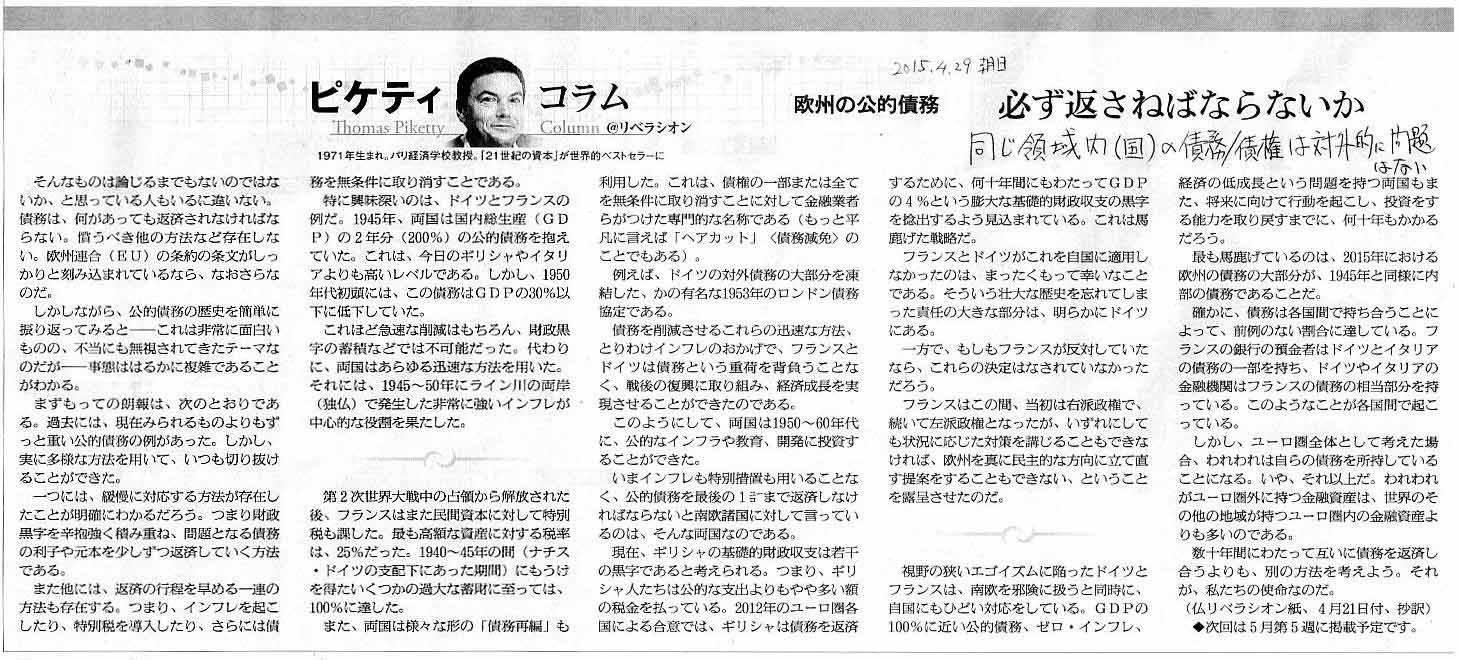 2015.4.29 朝日
ピケティ コラム
Thomas Piketty Column @リベラシオン
欧州の公的債務 必ず返さねばならないか
1971年生まれ。パリ経済学校教授。「21世紀の資本」が世界的ベストセラーに
同じ領域内(国)の債務/債権は対外的に問題
はない
そんなものは論じるまでもないのではな
いか、と思っている人もいるに違いない。
債務は、何があっても返済されなければな
らない。償うべき他の方法など存在しな
い。欧州連合(EU)の条約の条文がしっ
かりと刻み込まれているなら、なおさらな
のだ。
しかしながら、公的債務の歴史を簡単に
振り返ってみると――これは非常に面白い
ものの、不当にも無視されてきたテーマな
のだが――事態ははるかに複雑であること
がわかる。
まずもっての朗報は、次のとおりであ
る。過去には、現在みられるものよりもず
っと重い公的債務の例があった。しかし、
実に多様な方法を用いて、いつも切り抜け
ることができた。
一つには、緩慢に対応する方法が存在し
たことが明確にわかるだろう。つまり財政
黒字を辛抱強く積み重ね、問題となる債務
の利子や元本を少しずつ返済していく方法
である。
また他には、返済の行程を早める一連の
方法も存在する。つまり、インフレを起こ
したり、特別税を導入したり、さらには債
務を無条件に取り消すことである。
特に興味深いのは、ドイツとフランスの
例だ。1945年、両国は国内総生産(GD
P)の2年分(200%)の公的債務を抱え
ていた。これは、今日のギリシャやイタリ
アよりも高いレベルである。しかし、1950
年代初頭には、この債務はGDPの30%以
下に低下していた。
これほど急速な削減はもちろん、財政黒
字の蓄積などでは不可能だった。代わり
に、両国はあらゆる迅速な方法を用いた。
それには、1945~50年にライン川の両岸
(独仏)で発生した非常に強いインフレが
中心的な役割を果たした。
第2次世界大戦中の占領から解放された
後、フランスはまた民間資本に対して特別
税も課した。最も高額な資産に対する税率
は、25%だった。1940~45年の間(ナチス
・ドイツの支配下にあった期間)にもうけ
を得たいくつかの過大な蓄財に至っては、
100%に達した。
また、両国は様々な形の「債務再編」も
利用した。これは、債権の一部または全て
を無条件に取り消すことに対して金融業者
らがつけた専門的な名称である(もっと平
凡に言えば「ヘアカット」〈債務減免〉の
ことでもある)。
例えば、ドイツの対外債務の大部分を凍
結した、かの有名な1953年のロンドン債務
協定である。
債務を削減させるこれらの迅速な方法、
とりわけインフレのおかげで、フランスと
ドイツは債務という重荷を背負うことな
く、戦後の復興に取り組み、経済成長を実
現させることができたのである。
このようにして、両国は1950~60年代
に、公的なインフラや教育、開発に投資す
ることができた。
いまインフレも特別措置も用いることな
く、公的債務を最後の1㌣まで返済しなけ
ればならないと南欧諸国に対して言ってい
るのは、そんな両国なのである。
現在、ギリシャの基礎的財政収支は若干
の黒字であると考えられる。つまり、ギリ
シャ人たちは公的な支出よりもやや多い額
の税金を払っている。2012年のユーロ圏各
国による合意では、ギリシャは債務を返済
するために、何十年間にもわたってGDP
の4%という膨大な基礎的財政収支の黒字
を捻出するよう見込まれている。これは馬
鹿げた戦略だ。
フランスとドイツがこれを自国に適用し
なかったのは、まったくもって幸いなこと
である。そういう壮大な歴史を忘れてしま
った責任の大きな部分は、明らかにドイツ
にある。
一方で、もしもフランスが反対していた
なら、これらの決定はなされていなかった
だろう。
フランスはこの間、当初は右派政権で、
続いて左派政権となったが、いずれにして
も状況に応じた対策を講じることもできな
ければ、欧州を真に民主的な方向に立て直
す提案をすることもできない、ということ
を露呈させたのだ。
視野の狭いエゴイズムに陥ったドイツと
フランスは、南欧を邪険に扱うと同時に、
自国にもひどい対応をしている。GDPの
100%に近い公的債務、ゼロ・インフレ、
経済の低成長という問題を持つ両国もま
た、将来に向けて行動を起こし、投資をす
る能力を取り戻すまでに、何十年もかかる
だろう。
最も馬鹿げているのは、2015年における
欧州の債務の大部分が、1945年と同様に内
部の債務であることだ。
確かに、債務は各国間で持ち合うことに
よって、前例のない割合に達している。フ
ランスの銀行の預金者はドイツとイタリア
の債務の一部を持ち、ドイツやイタリアの
金融機関はフランスの債務の相当部分を持
っている。このようなことが各国間で起こ
っている。
しかし、ユーロ圏全体として考えた場
合、われわれは自らの債務を所持している
ことになる。いや、それ以上だ。われわれ
がユーロ圏外に持つ金融資産は、世界のそ
の他の地域が持つユーロ圏内の金融資産よ
りも多いのである。
数十年間にわたって互いに債務を返済し
合うよりも、別の方法を考えよう。それ
が、私たちの使命なのだ。
(仏リベラシオン紙、4月21日付、抄訳)
◆次回は5月第5週に掲載予定です。